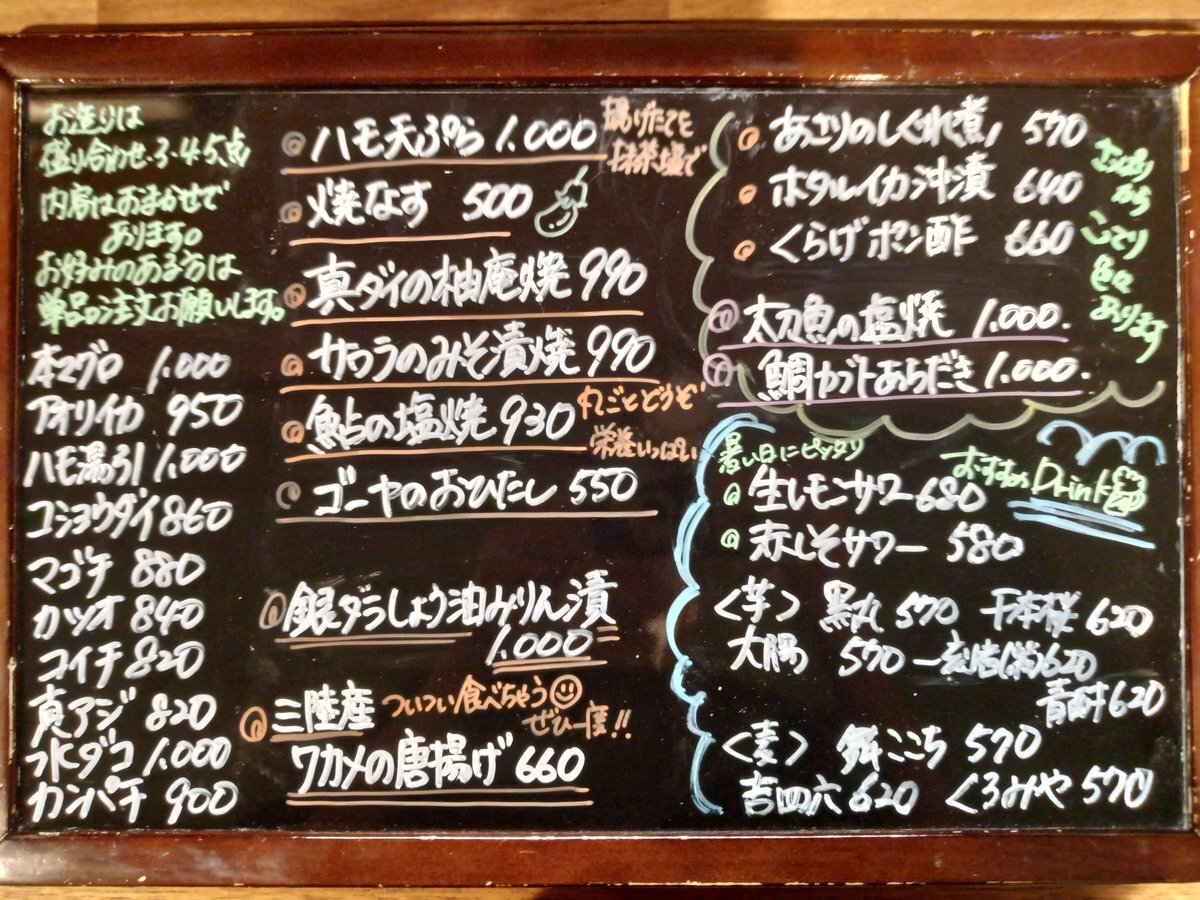 お造りは
盛り合わせ・3・4・5点
内容はおまかせで
あります。
お好みのある方は
単品ご注文お願いします。
本マグロ 1.000
アオリイカ 950
ハモ湯引 1.000
コショウダイ 860
マゴチ 880
カツオ 840
コイチ 820
真アジ 820
水ダコ 1.000
カンパチ 900
ハモ天ぷら 1.000
揚げたてを
抹茶塩で
焼なす 500
真ダイの柚庵焼 990
サワラのみそ漬焼 990
鮎の塩焼 930
丸ごとどうぞ
栄養いっぱい
ゴーヤのおひたし 550
銀ダラしょう油みりん漬
1.000
三陸産
ついつい食べちゃう
ぜひ一度!!
ワカメの唐揚げ 660
あさりのしぐれ煮 570
ホタルイカ沖漬 640
くらげポン酢 660
さっぱり
から
こってり
色々
あります
太刀魚の塩焼 1.000.
鯛カブトあらだき 1.000.
暑い日にピッタリ
おすすめDrink
生レモンサワー 680
赤しそサワー 580
<芋> 黒丸 570 千本桜 620
大陽 570 一刻者(芋)620
620
<麦> 舞ここち 570
吉四六 620 くろみや 570